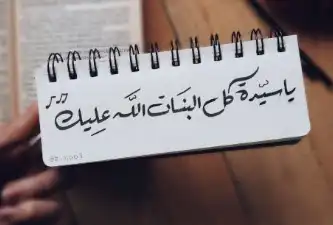 يا سيّدة كل البنَات اللّه عِليك